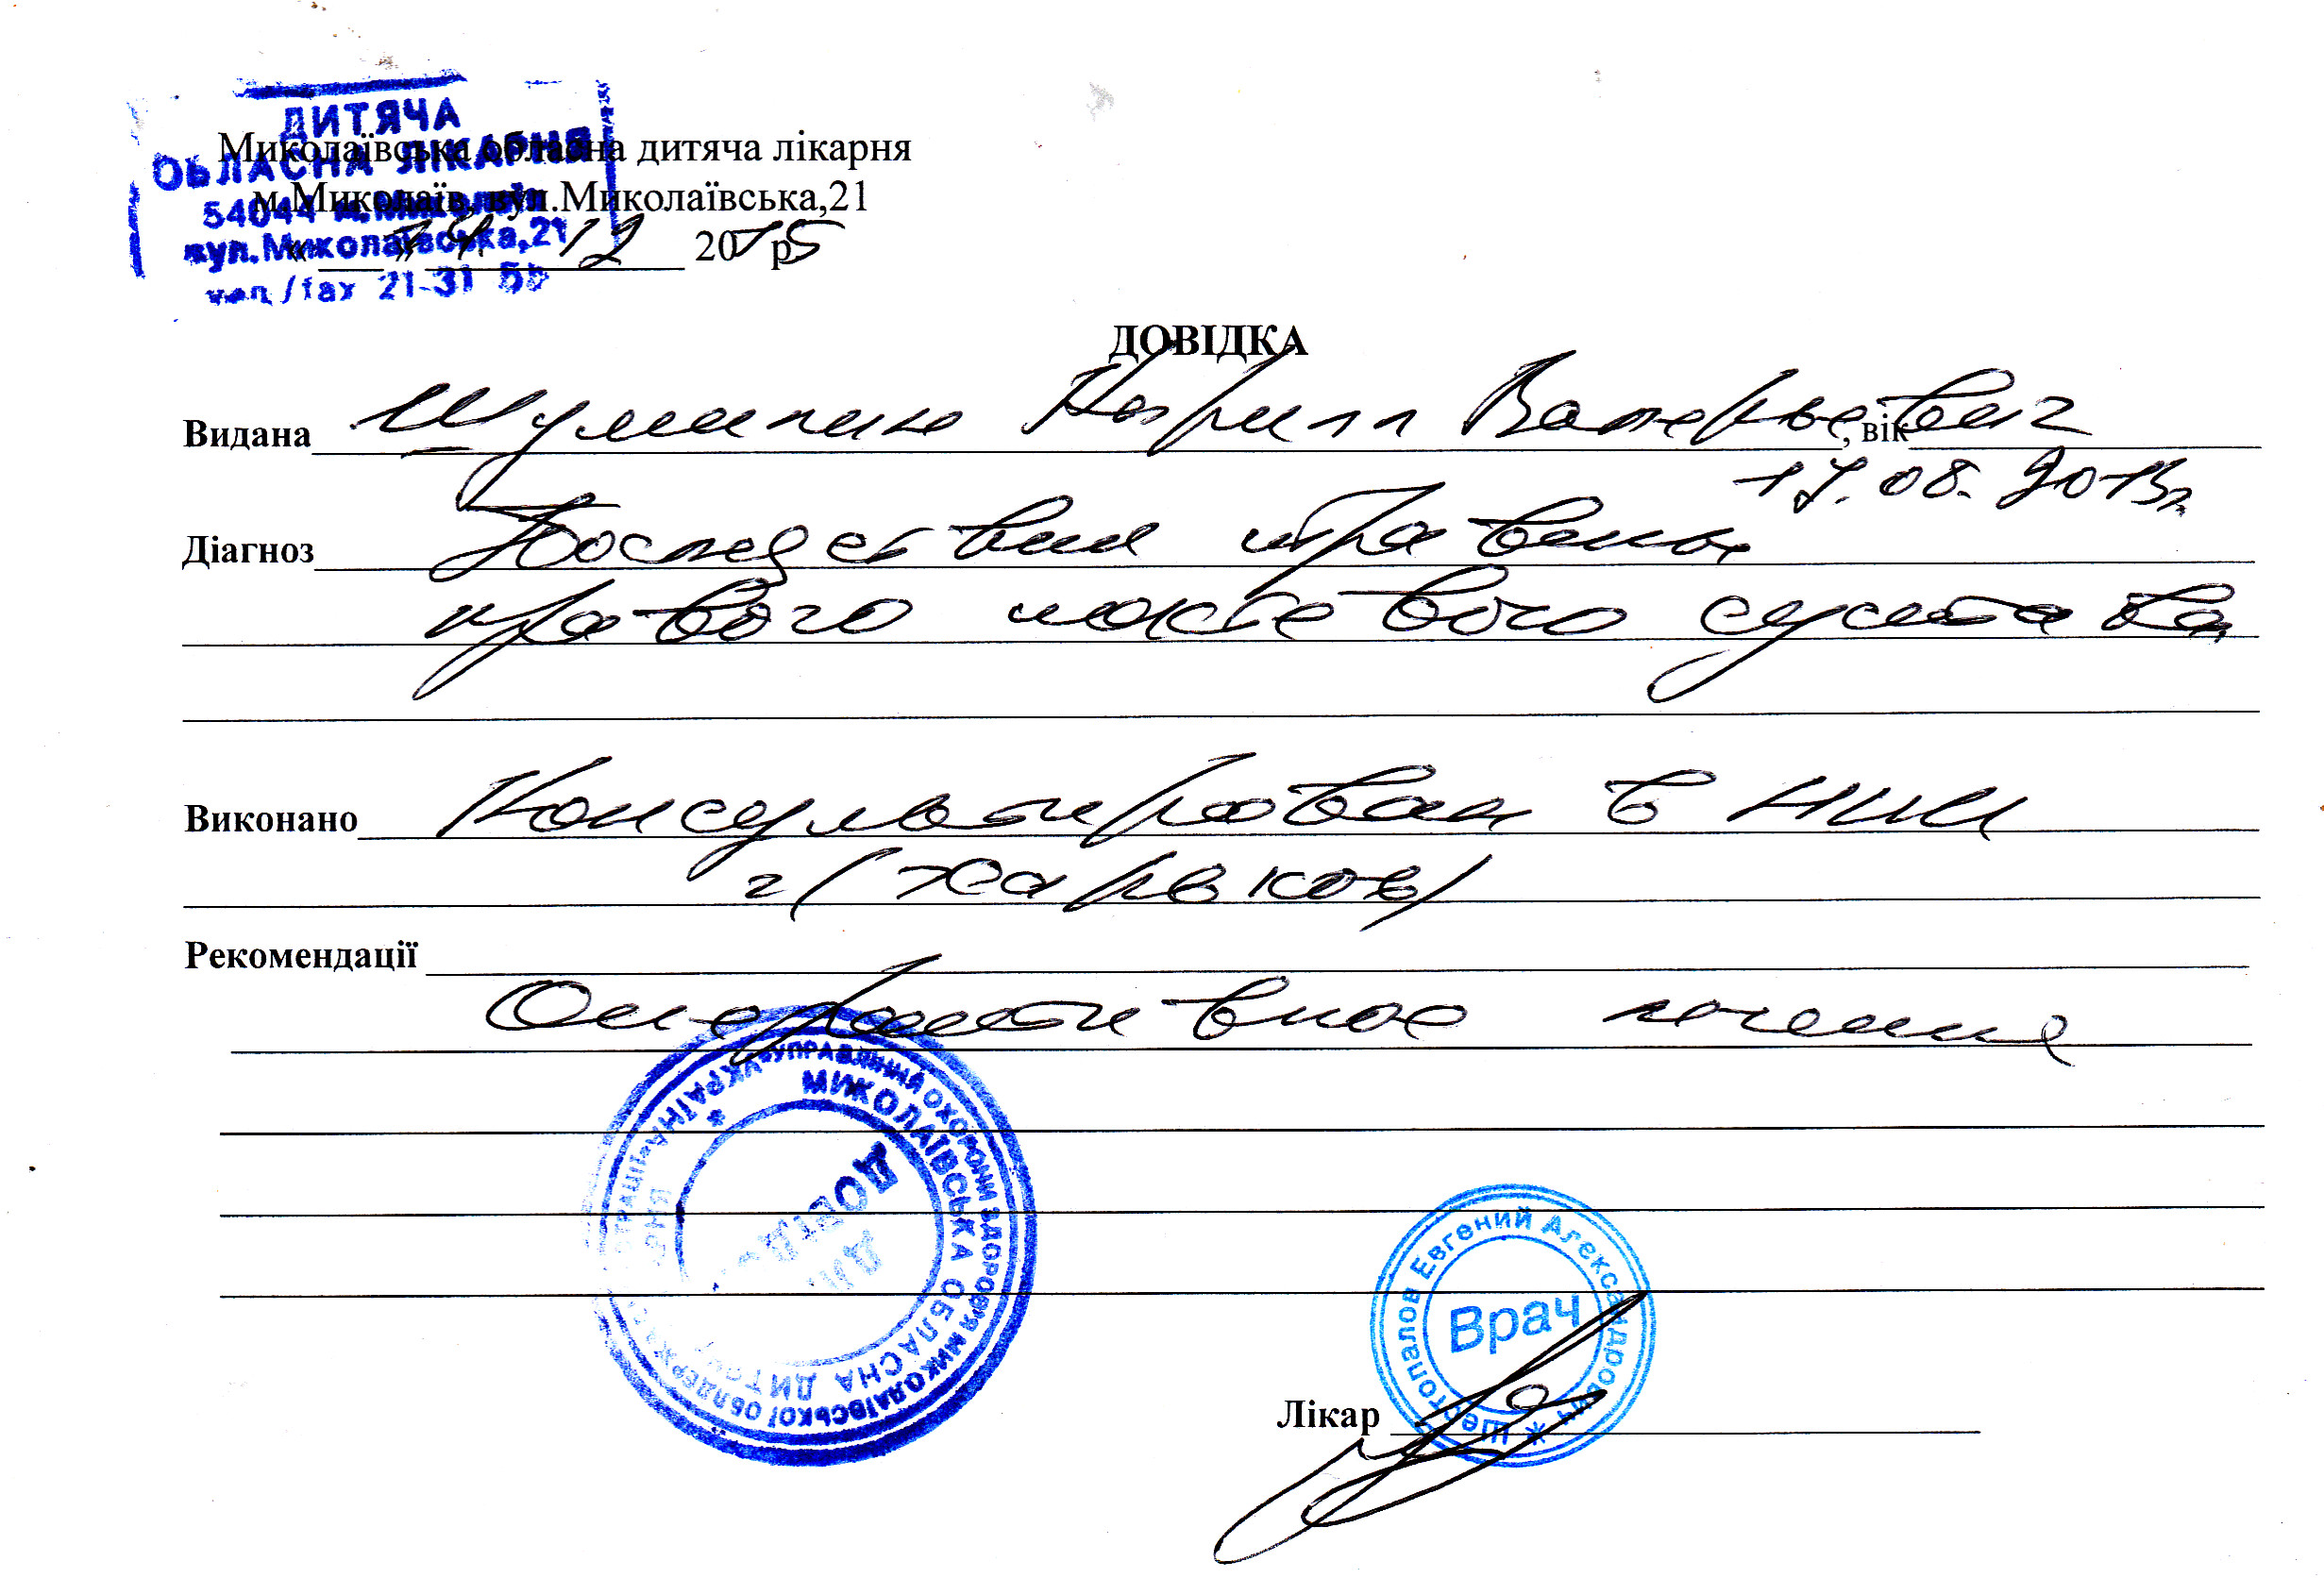 ДИТЯЧА
ОБЛАСНА ЛІКАРНЯ
54044 м.Миколаїв
вул.Миколаївська,21
тел/fax 21-31
Миколаївська обласна дитяча лікарня
м.Миколаїв, вул.Миколаївська,21
« ___ » 12 2015 р
ДОВІДКА
Видана Шумилин Кирилл Валерьевич, вік
17.08.2013г.
Діагноз Последствия травмы
правого локтевого сустава
Виконано Консультирован в НИИ
г (Харьков)
Рекомендації
Оперативное лечение
УКРАЇНА * УПРАВЛІННЯ ОХОРОНИ ЗДОРОВ'Я МИКОЛАЇВСЬКОЇ ОБЛДЕРЖ
МИКОЛАЇВСЬКА ОБЛАСНА ДИТЯЧ
ДЛЯ
ДОВІД
Шестопалов Евгений Александрович
Врач
Лікар